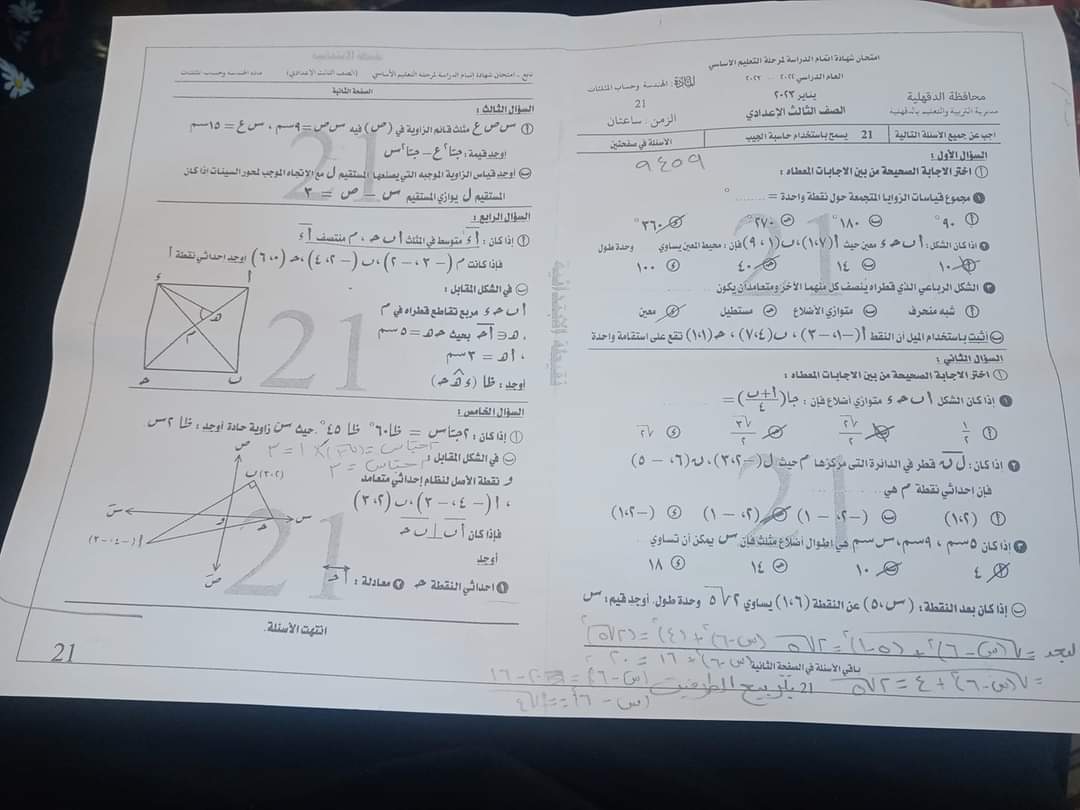 امتحان شهادة اتمام الدراسة لمرحلة التعليم الأساسي
العام الدراسي ٢٠٢٢ - ٢٠٢٣
محافظة الدقهلية
يناير ٢٠٢٣
المادة: الهندسة وحساب المثلثات
مديرية التربية والتعليم بالدقهلية
الصف الثالث الإعدادي
21
الزمن: ساعتان
اجب عن جميع الأسئلة التالية
21 يسمح باستخدام حاسبة الجيب
الأسئلة في صفحتين
السؤال الأول:
٩٤٥٩
أ) اختر الاجابة الصحيحة من بين الاجابات المعطاه:
١ مجموع قياسات الزوايا المتجمعة حول نقطة واحدة = ........°
أ ٩٠° ب ١٨٠° ج ٢٧٠° د ٣٦٠°
٢ اذا كان الشكل: أ ب ح ء معين حيث أ(٧، ١)، ب(١، ٩) فإن: محيط المعين يساوي وحدة طول
أ ١٠ ب ١٤ ج ٤٠ د ١٠٠
٣ الشكل الرباعي الذي قطراه ينصف كل منهما الآخر ومتعامدان يكون
أ شبه منحرف ب متوازي الأضلاع ج مستطيل د معين
ب) أثبت باستخدام الميل أن النقط أ(-١، -٣)، ب(٧، ٤)، ح(١، ١) تقع على استقامة واحدة
السؤال الثاني:
أ) اختر الاجابة الصحيحة من بين الاجابات المعطاه:
١ إذا كان الشكل أ ب ح ء متوازي أضلاع فإن: جا(أ+ب/٤) =
أ ١/٢ ب √٢/٢ ج √٣/٢ د √٢
٢ إذا كان: ل ن قطر في الدائرة التى مركزها م حيث ل(-٢، ٣)، ن(٦، -٥)
فإن احداثي نقطة م هي
أ (٢، ١) ب (-٢، -١) ج (٢، -١) د (-٢، ١)
٣ إذا كان ٥سم، ٩سم، س سم هي اطوال أضلاع مثلث فإن س يمكن أن تساوي
أ ٤ ب ١٠ ج ١٤ د ١٨
ب) إذا كان بعد النقطة: (س، ٥) عن النقطة (٦، ١) يساوي ٢√٥ وحدة طول. أوجد قيم: س
باقي الأسئلة في الصفحة الثانية
21
بتربيع الطرفين
تابع - امتحان شهادة إتمام الدراسة لمرحلة التعليم الأساسي (الصف الثالث الإعدادي) مادة الهندسة وحساب المثلثات
الصفحة الثانية
السؤال الثالث:
أ) س ص ع مثلث قائم الزاوية في (ص) فيه س ص = ٩سم، س ع = ١٥سم
أوجد قيمة: جتا²ع - جتا²س
ب) أوجد قياس الزاوية الموجبه التي يصنعها المستقيم ل مع الاتجاه الموجب لمحور السينات اذا كان
المستقيم ل يوازي المستقيم س - ص = ٣
السؤال الرابع:
أ) إذا كان: أء متوسط في المثلث أ ب ح، م منتصف أء
فإذا كانت م(-٣، -٢)، ب(-٢، ٤)، ح(٠، ٦) أوجد احداثي نقطة أ
ب) في الشكل المقابل:
أ ب ح ء مربع تقاطع قطراه في م
، ه ∈ أح بحيث ح ه = ٥سم
، أ ه = ٣سم
أوجد: ظا (ء ه ح)
ء أ ه م ح ب
السؤال الخامس:
أ) إذا كان: ٢جتا س = ظا٦٠° ظا٤٥° حيث س زاوية حادة أوجد: ظا ٢س
ب) في الشكل المقابل:
و نقطة الأصل لنظام إحداثي متعامد
، أ(-٤، -٣)، ب(٢، ٣)
فإذا كان أب ⊥ ب ح
أوجد
١ احداثي النقطة ح ٢ معادلة: أح
ص ب(٢، ٣) س و ح سَ أ(-٤، -٣) صَ
انتهت الأسئلة.
21